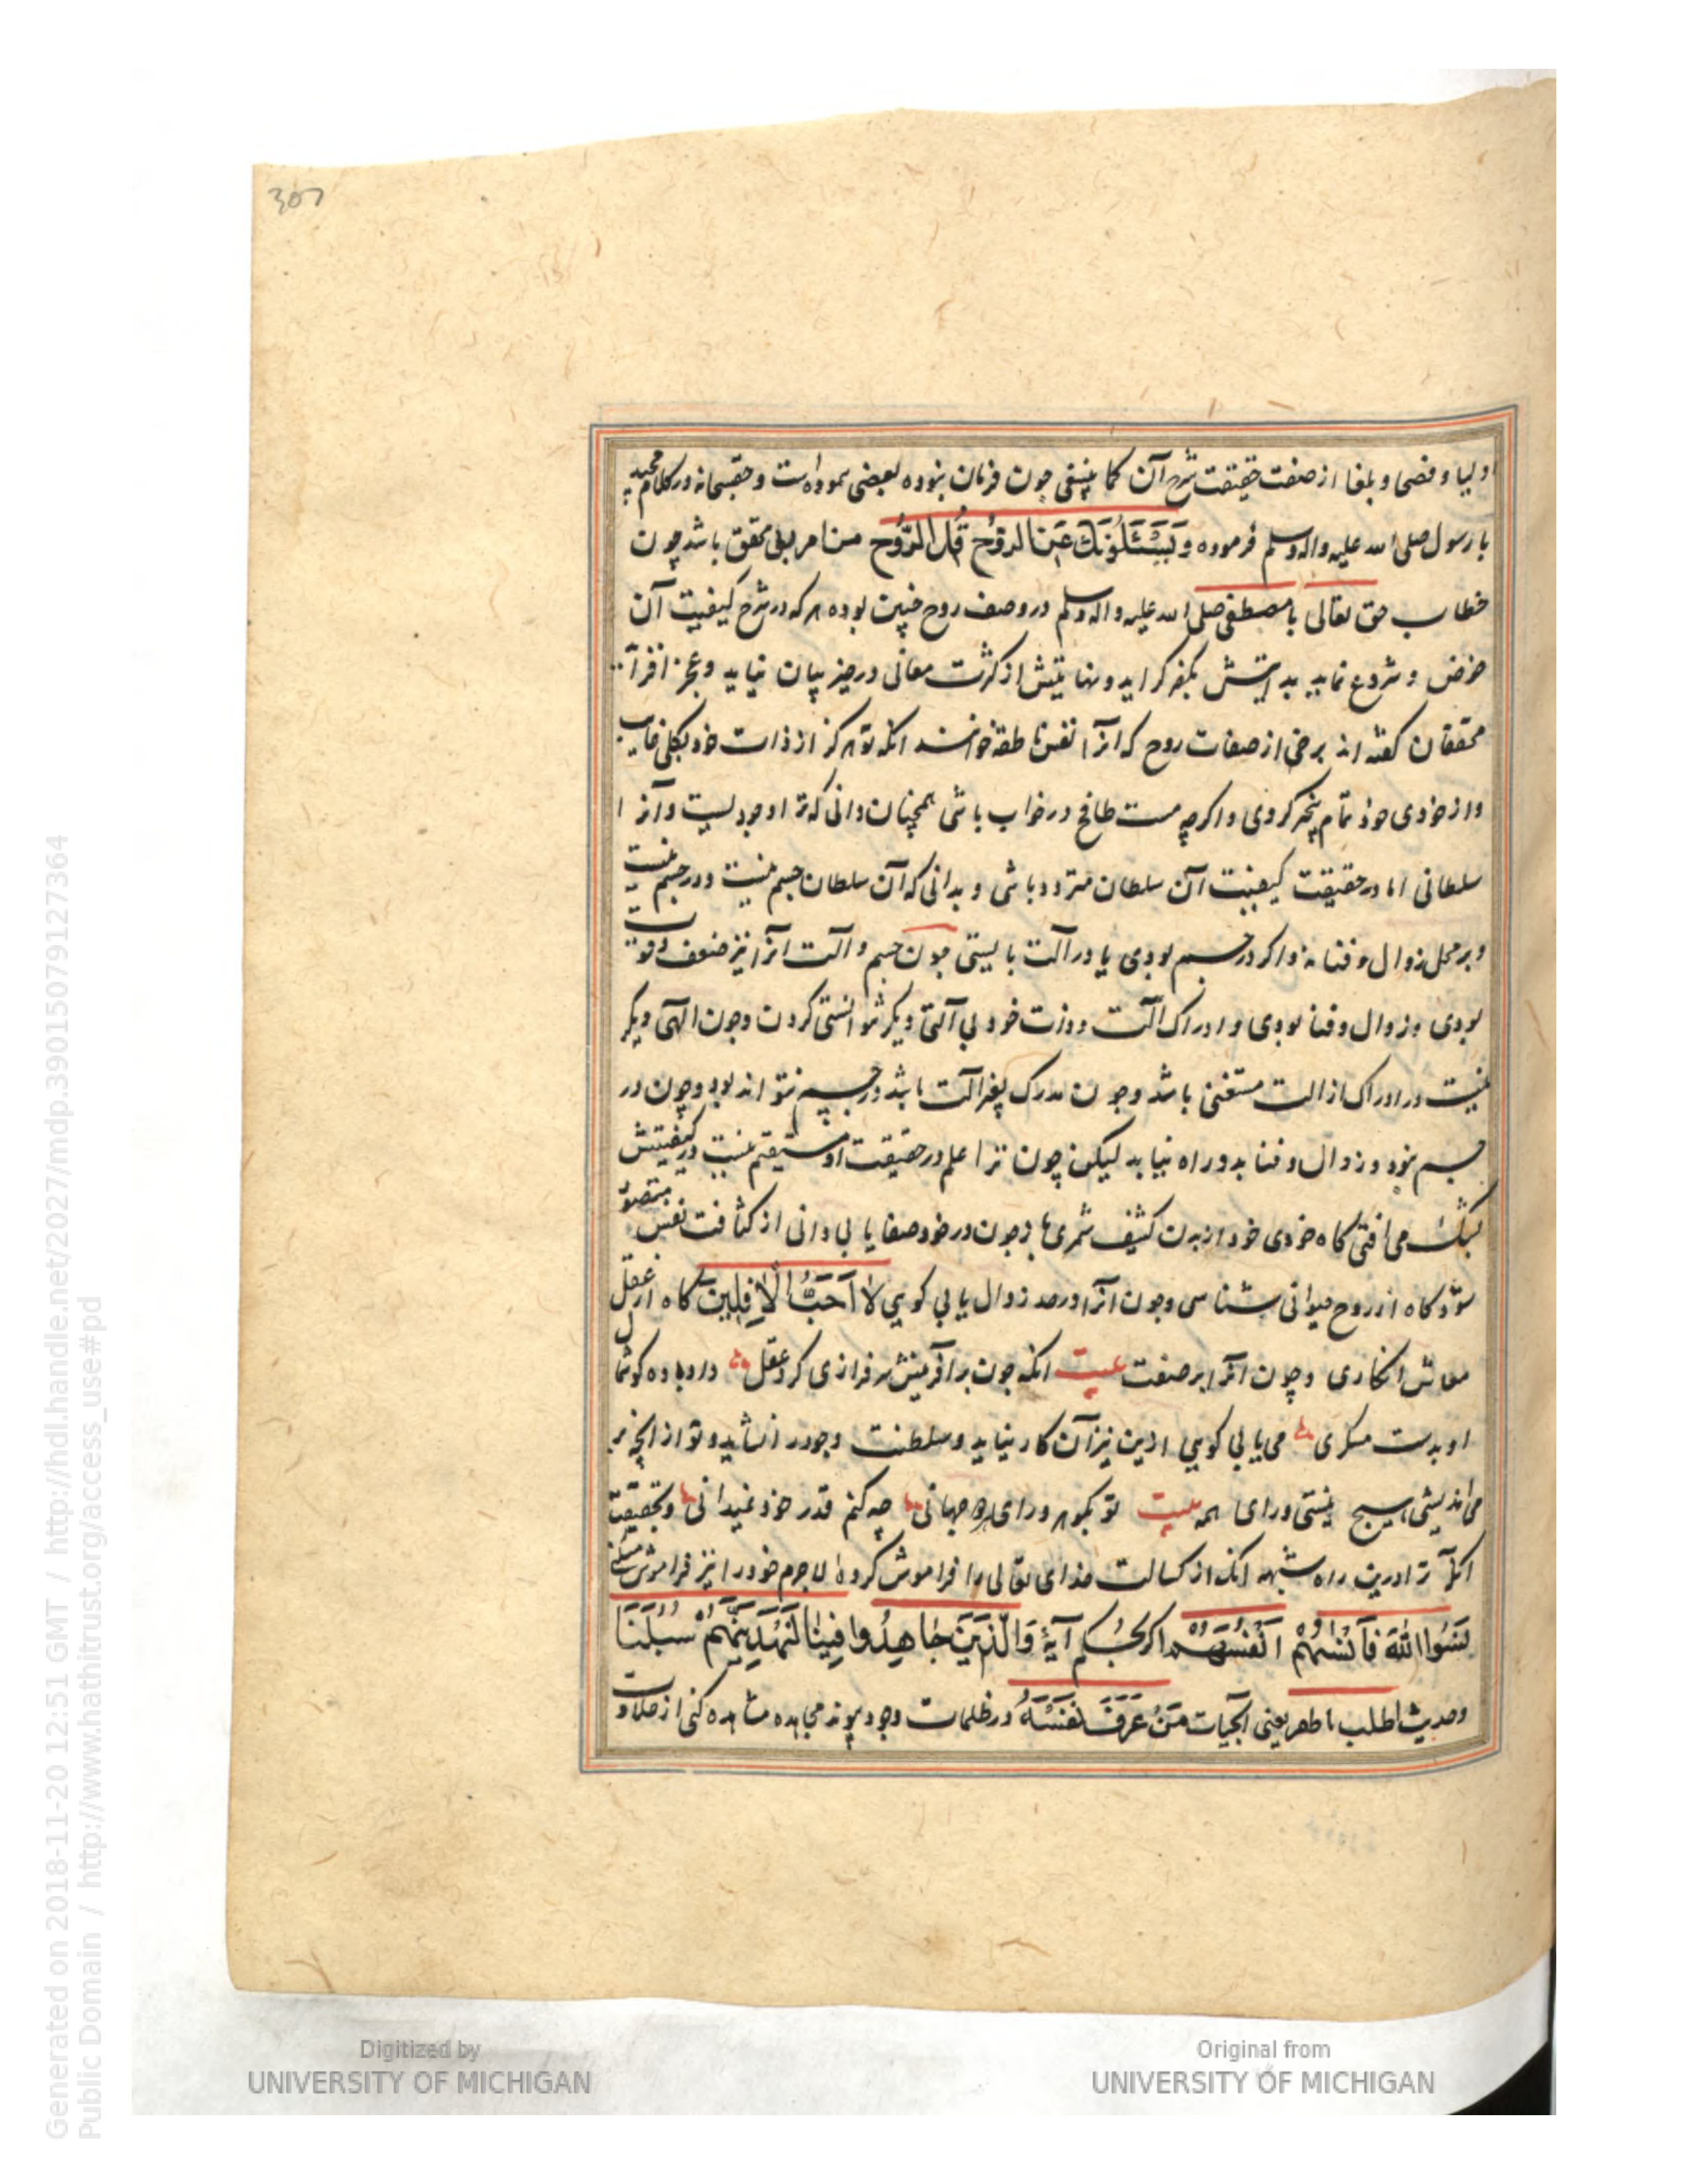 307
اولیا و فصحا و بلغا از صفت حقیقت شرح آن کما ینبغی چون فرمان نبوده بعضی نموده است و حقسبحانه در کلام مجید
با رسول صلی الله علیه واله وسلم فرموده وَيَسْئَلُونَكَ عَنِ الرُّوحِ قُلِ الرُّوحُ من امر ربی محقق باشد چون
خطاب حق تعالی با مصطفی صلی الله علیه واله وسلم در وصف روح چنین بوده هرکه در شرح کیفیت آن
خوض و شروع نماید بدایتش بکفر گراید و نهایتش از کثرت معانی در حیز بیان نیاید و عجز افزاید
محققان گفته اند برخی از صفات روح که انرا نفس ناطقه خوانند انکه تو هرگز از ذات خود بکلی غایب
و از خودی خود تمام بیخبر گردی و اگرچه مست طافح در خواب باشی همچنان دانی که ترا وجودیست و آنرا
سلطانی اما در حقیقت کیفیت آن سلطان متردد باشی و بدانی که آن سلطان جسم نیست و در جسم نیست
و بر محل زوال و فنا نه و اگر در جسم بودی یا در آلت بایستی چون جسم و آلت انرا نیز ضعف و قوت
بودی و زوال و فنا بودی و ادراک آلت و ذات خود بی آلتی دیگر نتوانستی کردن و چون آلتی دیگر
نیست در ادراک از الت مستغنی باشد و چون مدرک بغیر آلت باشد در جسم نتواند بود و چون در
جسم نبود و زوال و فنا بدو راه نیابد لیکن چون ترا علم در حقیقت او مستقیم نیست در کیفیتش
بشک می افتی گاه خودی خود از بدن کثیف شمری و چون در خود صفا یابی دانی از کثافت نفس متصور
نشود گاه از روح حیوانی شناسی و چون انرا در صدد زوال یابی گویی لَا أُحِبُّ الْآفِلِينَ گاه از عقل
معاش انگاری و چون انرا بر صفت بیت انکه چون بر آفرینش سرفرازی کرد عقل داد باده گوشمال
او بدست مسکری می یابی گویی ازین نیز آن کار نیاید و سلطنت وجود را نشاید و تو از انچه بر
می اندیشی هیچ نیستی ورای همه بیت تو بگوهر ورای هر دو جهانی چه کنم قدر خود نمیدانی و بحقیقت
انکه ترا درین راه شبهه افکند از کسالت خدای تعالی را فراموش کرده لاجرم خود را نیز فراموش میکنی
نَسُوا اللهَ فَأَنْسٰهُمْ أَنْفُسَهُمْ اگر بحکم آیهٔ وَالَّذِينَ جَاهَدُوا فِينَا لَنَهْدِيَنَّهُمْ سُبُلَنَا
و حدیث اطلب یعنی آبحیات مَنْ عَرَفَ نَفْسَهُ در ظلمات وجود مجاهده مشاهده کنی از
Generated on 2018-11-20 12:51 GMT / http://hdl.handle.net/2027/mdp.39015079127364
Public Domain / http://www.hathitrust.org/access_use#pd
Digitized by
UNIVERSITY OF MICHIGAN
Original from
UNIVERSITY OF MICHIGAN